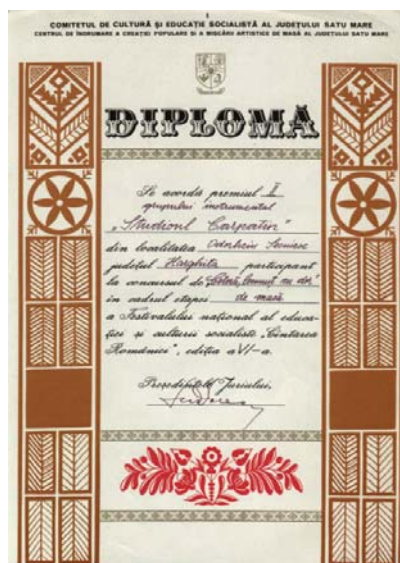 COMITETUL DE CULTURĂ ȘI EDUCAȚIE SOCIALISTĂ AL JUDEȚULUI SATU MARE
CENTRUL DE ÎNDRUMARE A CREAȚIEI POPULARE ȘI A MIȘCĂRII ARTISTICE DE MASĂ AL JUDEȚULUI SATU MARE
DIPLOMĂ
Se acordă premiul II
grupului instrumental
„Studioul Carpatin”
din localitatea Odorheiu Secuiesc
județul Harghita participant
la concursul de
în cadrul etapei de masă
a Festivalului național al educa-
ției și culturii socialiste „Cîntarea
României”, ediția a VI-a.
Președintele Juriului,